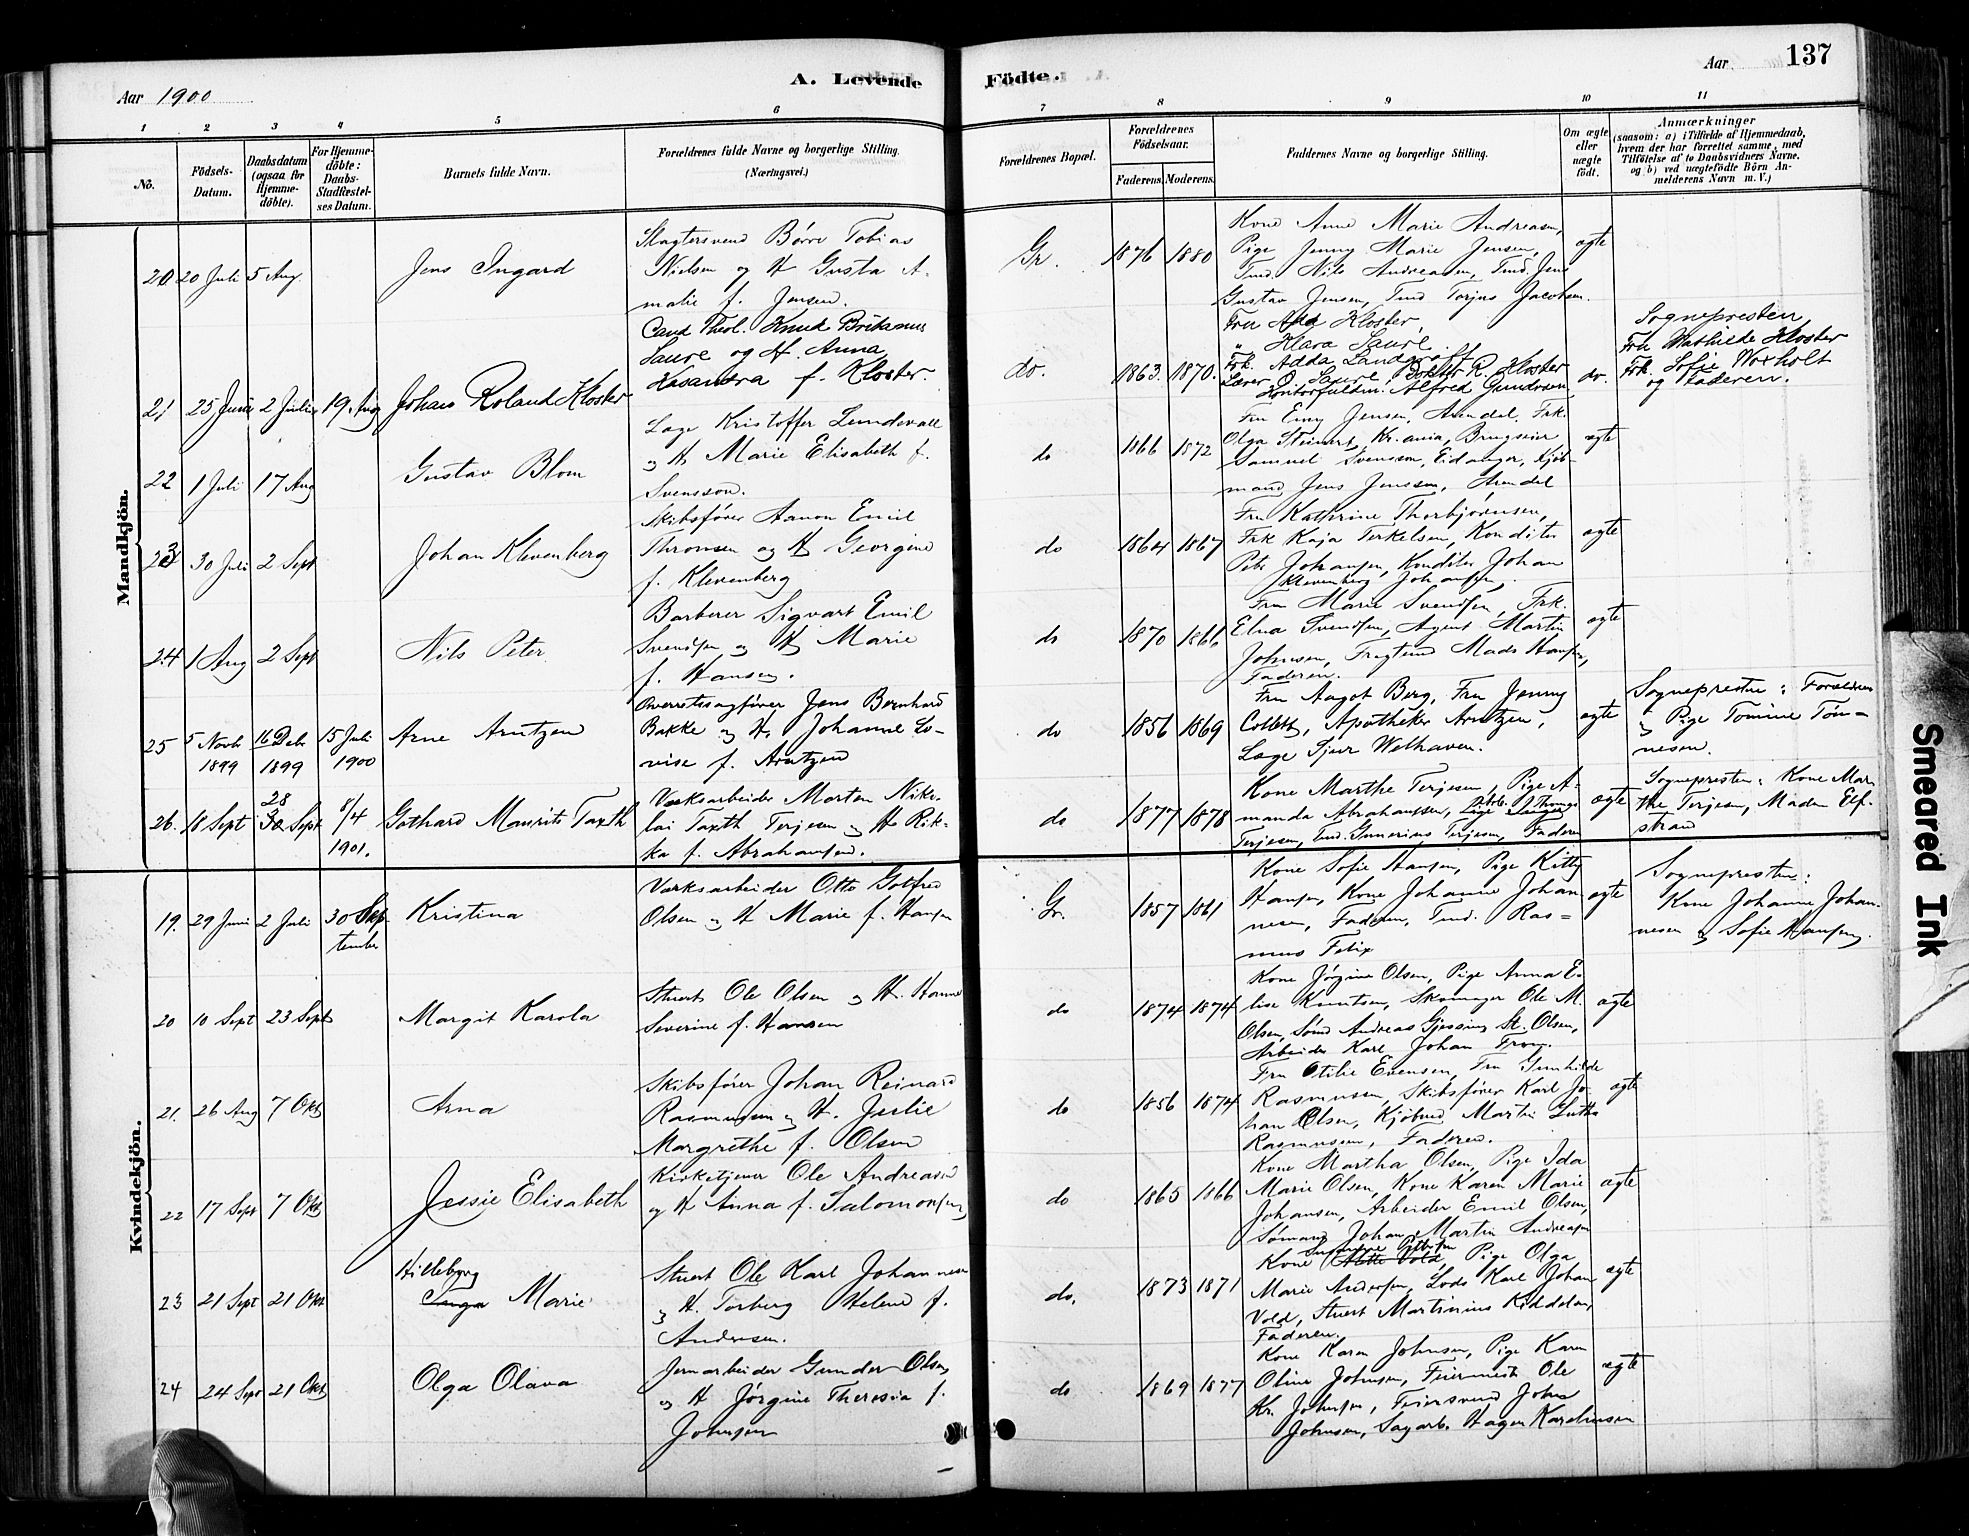 Aar 1900
A. Levende
Födte.
Aar
137
1 2 3 4 5 6 7 8 9 10 11
No.
Födsels-
Datum.
Daabsdatum
(ogsaa for
Hjemme-
döbte).
For Hjemme-
döbte:
Daabs-
Stadfestel-
ses Datum.
Barnets fulde Navn.
Forældrenes fulde Navne og borgerlige Stilling.
(Næringsvei.)
Forældrenes Bopæl.
Forældrenes
Födselsaar.
Faderens.
Moderens.
Faddernes Navne og borgerlige Stilling.
Om ægte
eller
uægte
født.
Anmærkninger
(saasom: a) i Tilfælde af Hjemmedaab,
hvem der har forrettet samme, med
Tilföielse af to Daabsvidners Navne,
og b) ved uægtefödte Börn An-
melderens Navn m. V.)
Mandkjön.
20 20 Juli 5 Aug. Jens Ingard
Slagtersvend Börre Tobias
Nielsen og H Gusta A-
malie f. Jensen.
Gr. 1876 1880
Kone Anne Marie Andreasen,
Pige Jenny Marie Jensen,
Tmd. Nils Andreasen, Tmd. Jens
Gustav Jensen, Tmd Torjus Jacobsen.
ægte
21 25 Juni 2 Juli 19. Aug Johan Roland Kloster
Cand. Theol. Knud Britanus
Saure og H. Anna
Kasandra f. Kloster.
do. 1863. 1870.
Fru Kloster,
" Klara Saure.
Frk. Adda Landgraff
Lærer O. Saure, Doktor R. Kloster
Kontorfuldm. Alfred Gundersen
do.
Sognepresten
Fru Mathilde Kloster
Frk. Sofie Woxholt
og Faderen.
22 1 Juli 17 Aug Gustav Blom
Læge Kristoffer Lundevall
og H. Marie Elisabeth f.
Svensson.
do 1866 1872
Fru Emy Jensen, Arendal, Frk.
Olga Steinert, Kr.ania, Brugseier
Samuel Svensson, Eidanger, Kjöb-
mand Jens Jenssen, Arendal
ægte
23 30 Juli 2 Sept Johan Klevenberg
Skibsförer Aanon Emil
Thronsen og H Georgine
f. Klevenberg
do 1864 1867
Fru Kathrine Thorbjörnsen,
Frk Kaja Terkelsen, Konditor
Peter Johansen, Konditor Johan
Klevenberg Johansen.
ægte
24 1 Aug 2 Sept Nils Peter
Barberer Sigvart Emil
Svendsen og H Marie
f. Hansen.
do 1870 1861
Fru Marie Svendsen, Frk.
Elna Svendsen, Agent Martin
Johnsen, Mads Hansen,
Faderen.
ægte
25 5 Novb 1899 16 Debr 1899 15 Juli 1900 Arne Arntzen
Overretssagförer Jens Bernhard
Bakke og H. Johanne Lo-
vise f. Arntzen
do 1856 1869
Fru Aagot Berg, Fru Jenny
Collett, Apotheker Arntzen,
Læge Sjur Welhaven.
ægte
Sognepresten: Forældrene
og Pige Tomine Tön-
nesen.
26. 18 Sept 28 30 Sept 8/4 1901. Gothard Maurits Taxth
Værksarbeider Morten Niko-
lai Taxth Terjesen og H Rik-
ka f. Abrahamsen.
do 1877 1878
Kone Marthe Terjesen, Pige A-
manda Abrahamssen,
Terjesen, Tmd. Gunerius Terjesen, Faderen
ægte
Sognepresten: Kone Mar-
the Terjesen, Madm Elf-
strand
Kvindekjön.
19. 29 Juni 2 Juli 30 September Kristina
Værksarbeider Otto Gotfred
Olsen og H Marie f. Hansen
Gr. 1857 1861
Kone Sofie Hansen, Pige Kitty
Hansen, Kone Johanne Johan-
nesen, Faderen, Tmd. Ras-
mus Felix
ægte
Sognepresten:
Kone Johanne Johan-
nesen og Sofie Hansen.
20 10 Sept 23 Sept Margit Karola
Stuert Ole Olsen og H. Hanne
Severine f. Hansen
do 1874 1874
Kone Jörgine Olsen, Pige Anna E-
lise Knutsen, Skomager Ole M.
Olsen, Sömd Andreas Gjessing St. Olsen,
Arbeider Karl Johan Tron.
ægte
21. 26 Aug 7 Okt Arna
Skibsförer Johan Reinard
Rasmussen og H. Jeslie
Margrethe f. Olsen
do 1856 1874
Fru Otilie Evensen, Fru Gunhilde
Rasmussen, Skibsförer Karl Jo-
han Olsen, Kjöbmd Martin Luther
Rasmussen, Faderen.
ægte
22 17 Sept 7 Okt Jessie Elisabeth
Kirketjener Ole Andreasen
og H Anna f. Salomonsen
do 1865 1866
Kone Martha Olsen, Pige Ida
Marie Olsen, Kone Karen Marie
Johansen, Arbeider Emil Olsen,
Sömand Johan Martin Andreasen
ægte
23 21 Sept 21 Okt Hilleborg
Inga Marie
Stuert Ole Karl Johannesen
og H. Torberg Helene f.
Andersen.
do. 1873 1871
Kone Vold, Pige Olga
Marie Andersen, Lods Karl Johan
Vold, Stuert Martinius Kiddelsen,
Faderen.
ægte
24 24 Sept 21 Okt Olga Olava
Jernarbeider Gunder Olsen
og H Jörgine Theresia f.
Johnsen
do 1869 1877
Kone Karen Johnsen, Pige Karen
Oline Johnsen, Feiermester Ole
Kr. Johnsen, Feiersvend Johan
Johnsen, Sagarb. Hagen Karelinsen
ægte
Smeared Ink